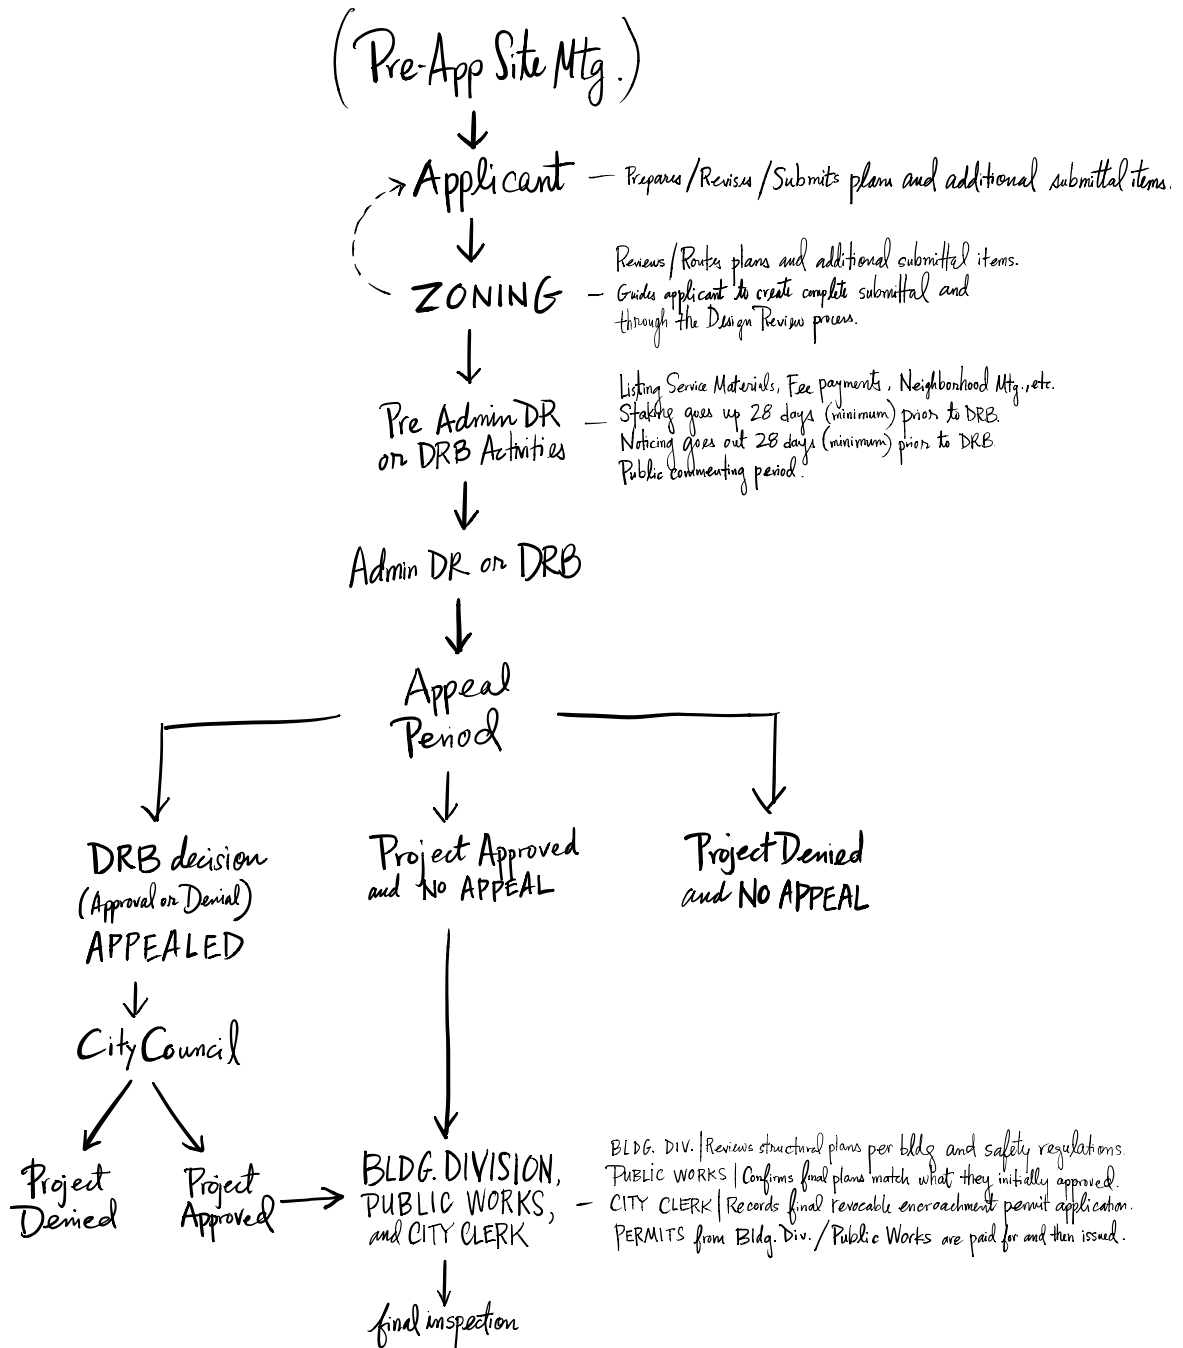 (Pre-App Site Mtg.)
Applicant – Prepares/Revises/Submits plans and additional submittal items.
ZONING –
Reviews/Routes plans and additional submittal items.
Guides applicant to create complete submittal and
through the Design Review process.
Pre Admin DR
or DRB Activities –
Listing Service Materials, Fee payments, Neighborhood Mtg., etc.
Staking goes up 28 days (minimum) prior to DRB.
Noticing goes out 28 days (minimum) prior to DRB
Public commenting period.
Admin DR or DRB
Appeal
Period
DRB decision
(Approval or Denial)
APPEALED
Project Approved
and NO APPEAL
Project Denied
and NO APPEAL
City Council
Project
Denied
Project
Approved
BLDG. DIVISION,
PUBLIC WORKS,
and CITY CLERK –
BLDG. DIV. | Reviews structural plans per bldg and safety regulations.
PUBLIC WORKS | Confirms final plans match what they initially approved.
CITY CLERK | Records final revocable encroachment permit application.
PERMITS from Bldg. Div./Public Works are paid for and then issued.
final inspection